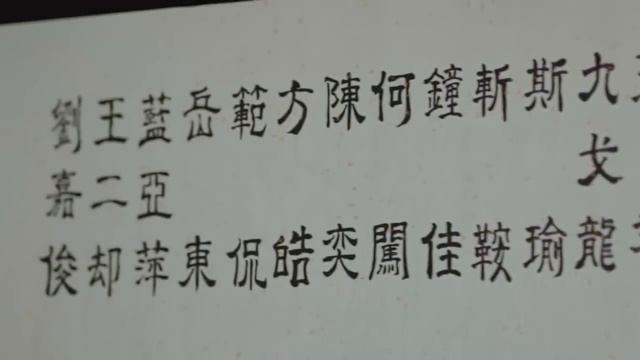 九戈龍
斯瑜
斬鞍
鐘佳
何闖
陳奕
方皓
範侃
岳東
藍亞萍
王二却
劉嘉俊